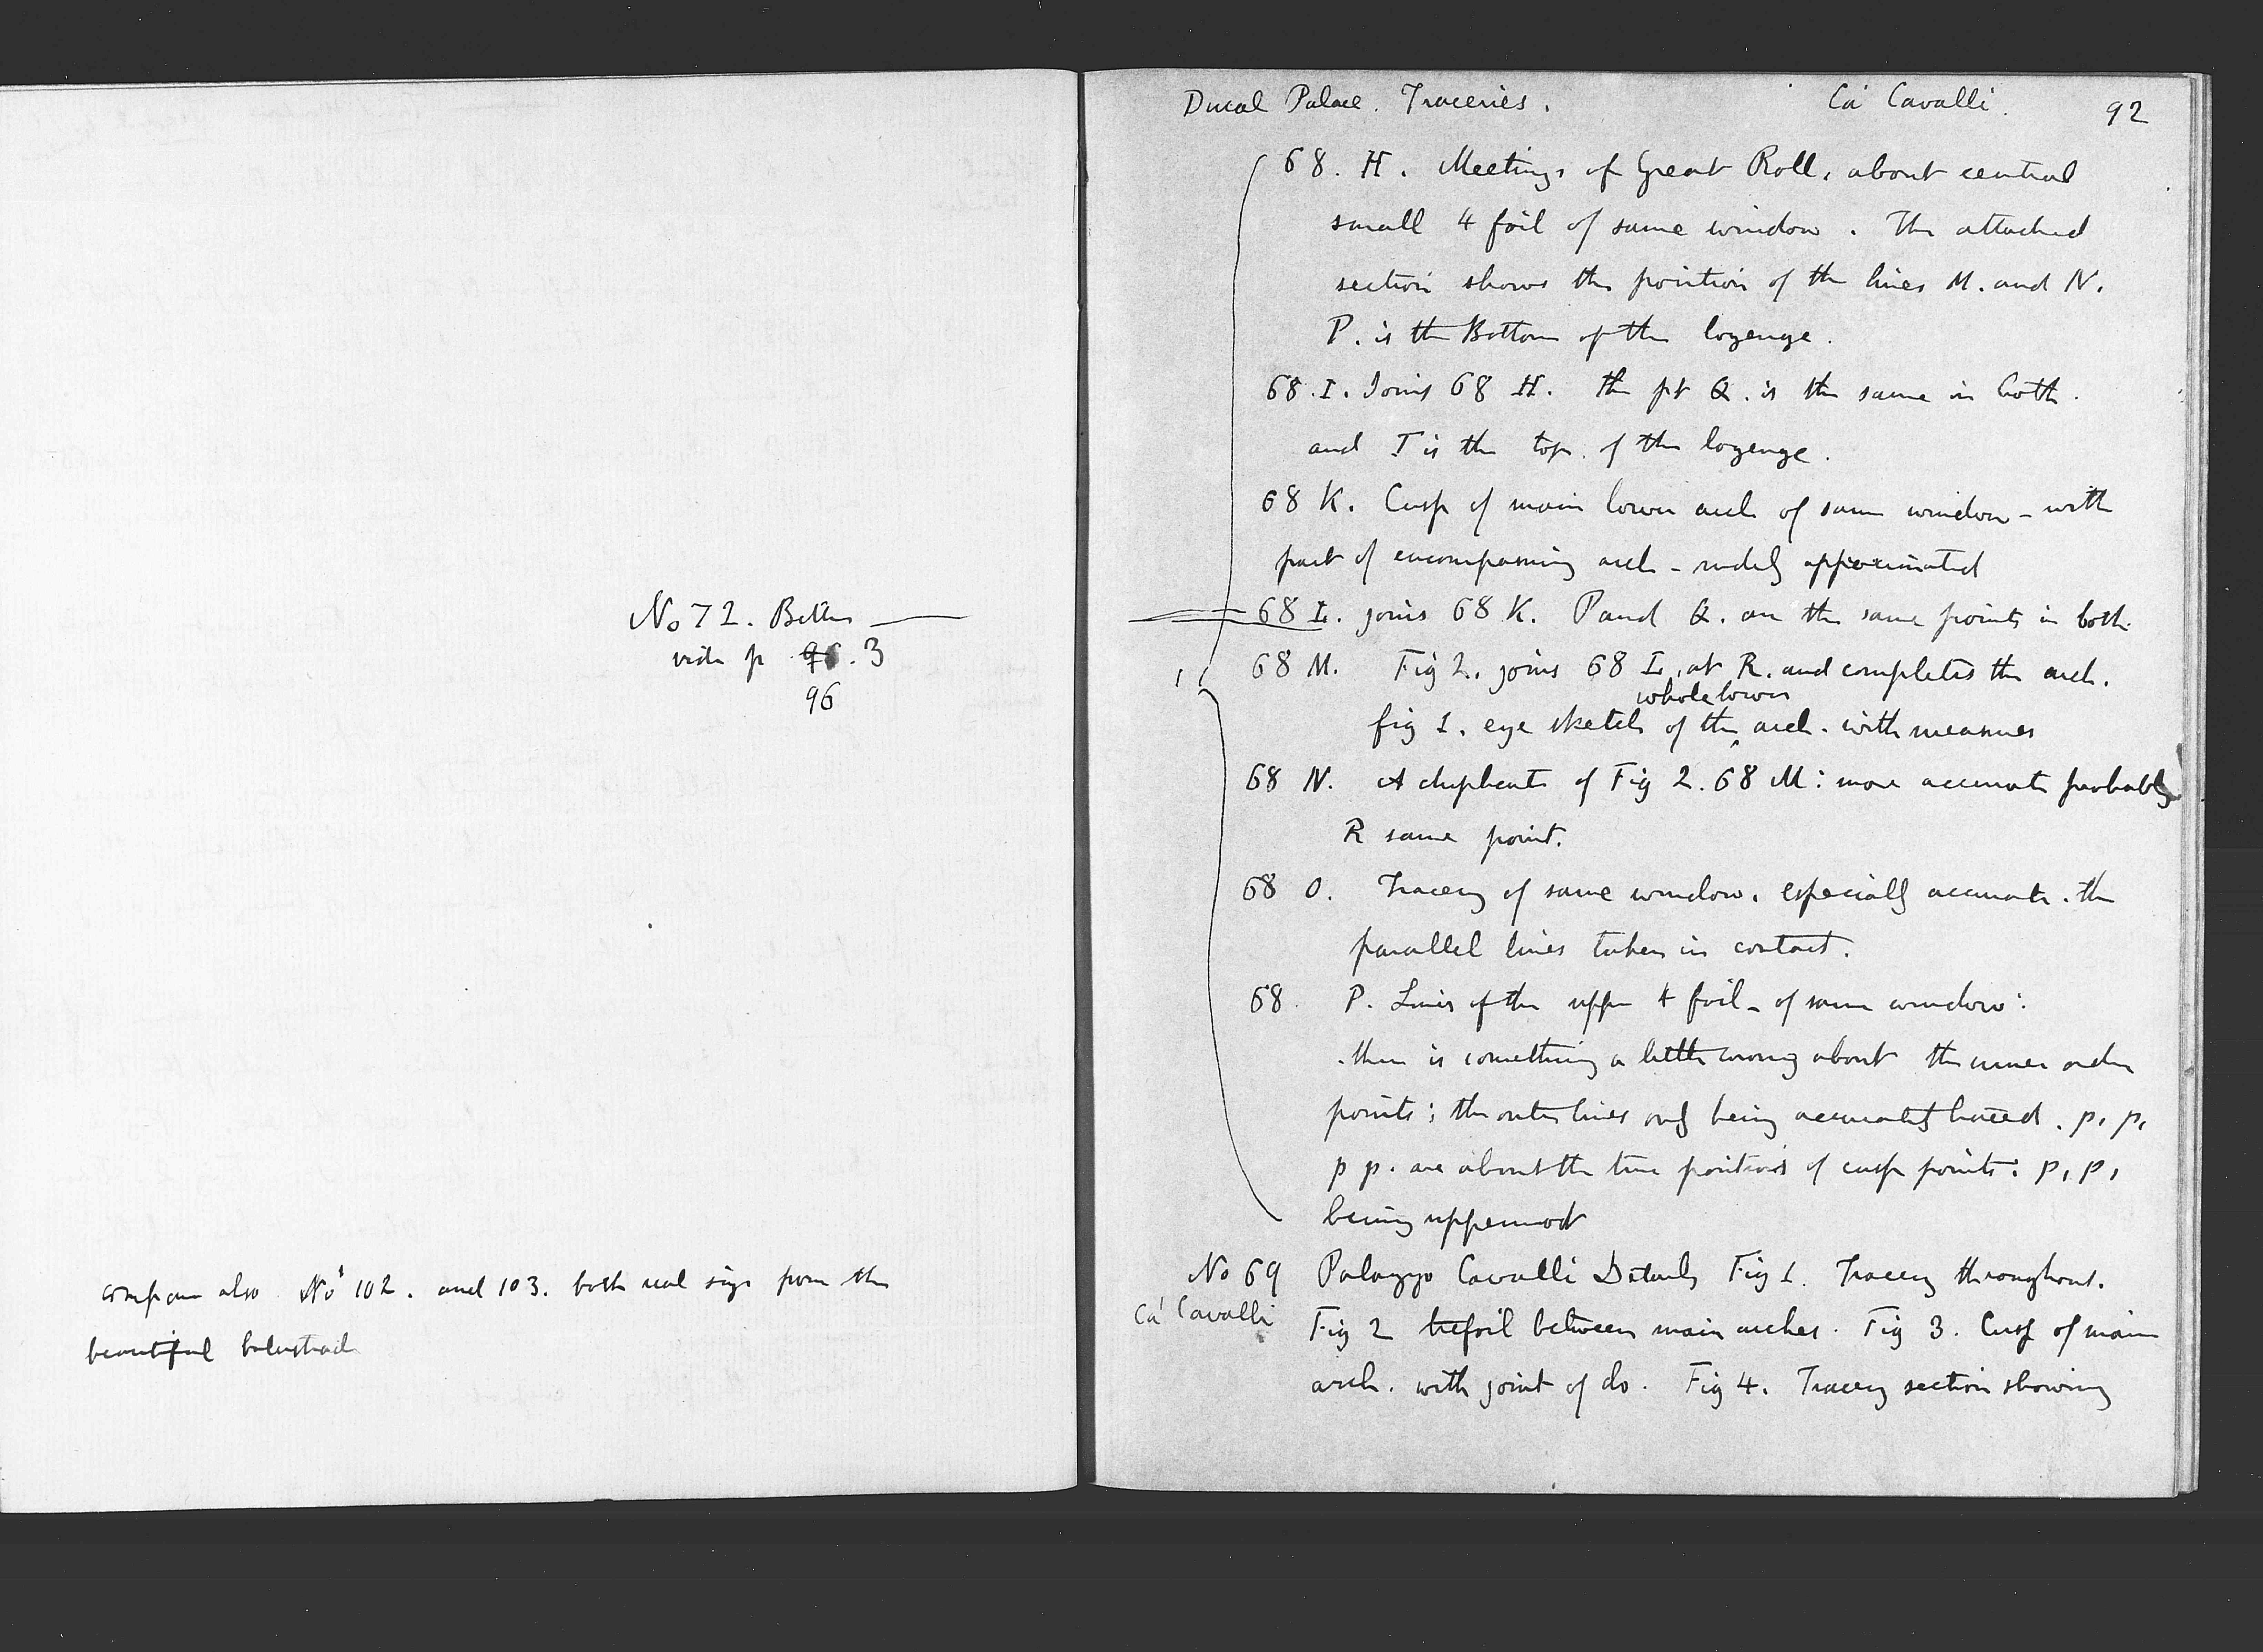 No 72. Better
vide p 96.3
96
compare also Nos 102. and 103. both real size from the
beautiful balustrade
Ducal Palace. Traceries. Ca' Cavalli. 92
68. H. Meetings of Great Roll, about central
small 4 foil of same window. The attached
section shows the position of the lines M. and N.
P. is the Bottom of the lozenge.
68. I. Joins 68 H. the pt Q. is the same in both.
and T is the top of the lozenge.
68 K. Cusp of main lower arch of same window - with
part of encompassing arch - rudely approximated
68 L. joins 68 K. P and Q. are the same points in both.
68 M. Fig 2. joins 68 L, at R. and completes the arch.
fig 1. eye sketch of the whole lower arch. with measures
68 N. A duplicate of Fig 2. 68 M: more accurate probably
R same point.
68 O. Tracery of same window. especially accurate. the
parallel lines taken in contact.
68. P. Lines of the upper 4 foil - of same window:
there is something a little wrong about the inner order
points; the outer lines only being accurately traced. p, p,
p p. are about the true positions of cusp points: p, p,
being uppermost
No 69 Palazzo Cavalli Details Fig 1. Tracery throughout.
Ca' Cavalli
Fig 2 trefoil between main arches. Fig 3. Cusp of main
arch. with joint of do. Fig 4. Tracery section showing